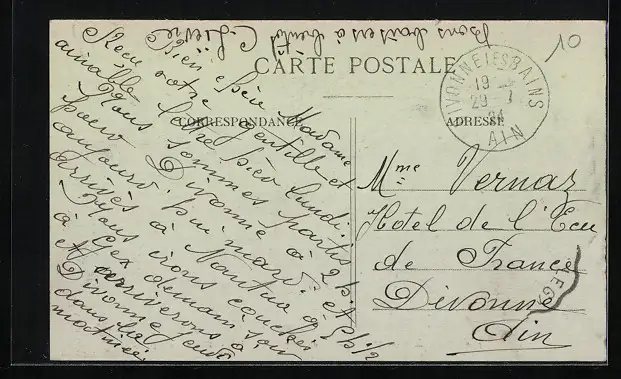 CARTE POSTALE
CORRESPONDANCE
ADRESSE
Bien chère Madame
Reçu votre gentille et
aimable lettre hier lundi.
Nous sommes partis
pour Divonne à 2h. et
aujourd'hui mardi
arrivés à Nantua à 5h 1/2
Nous irons coucher
à Gex demain soir
et arriverons à
Divonne jeudi
dans la
matinée.
Bons baisers à bientôt
Mme Vernaz
Hotel de l'Ecu
de France
Divonne
Ain
DIVONNE LES BAINS
19
29
AIN
10